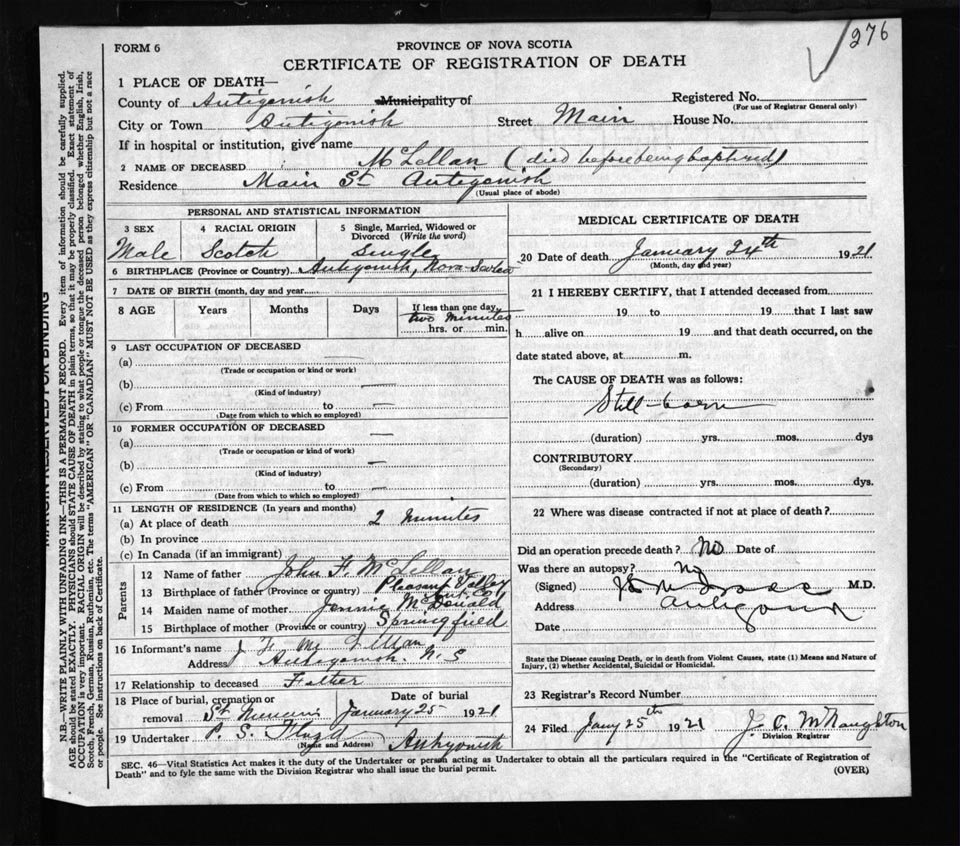 276
FORM 6
PROVINCE OF NOVA SCOTIA
CERTIFICATE OF REGISTRATION OF DEATH
1 PLACE OF DEATH—
County of Antigonish Municipality of Registered No.
(For use of Registrar General only)
City or Town Antigonish Street Main House No.
If in hospital or institution, give name
2 NAME OF DECEASED McLellan (died before being baptised)
Residence Main St Antigonish
(Usual place of abode)
PERSONAL AND STATISTICAL INFORMATION
3 SEX 4 RACIAL ORIGIN 5 Single, Married, Widowed or Divorced (Write the word)
Male Scotch Single
6 BIRTHPLACE (Province or Country) Antigonish, Nova Scotia
7 DATE OF BIRTH (month, day and year)
8 AGE Years Months Days If less than one day
two minutes
hrs. or min.
9 LAST OCCUPATION OF DECEASED
(a)
(Trade or occupation or kind or work)
(b)
(Kind of industry)
(c) From to
(Date from which to which so employed)
10 FORMER OCCUPATION OF DECEASED
(a)
(Trade or occupation or kind of work)
(b)
(Kind of industry)
(c) From to
(Date from which to which so employed)
11 LENGTH OF RESIDENCE (In years and months)
(a) At place of death 2 minutes
(b) In province
(c) In Canada (if an immigrant)
Parents
12 Name of father John F. McLellan
13 Birthplace of father (Province or country) Pleasant Valley Ant. Co.
14 Maiden name of mother Jennie McDonald
15 Birthplace of mother (Province or country) Springfield
16 Informant's name J F McLellan
Address Antigonish. N.S
17 Relationship to deceased Father
18 Place of burial, cremation or removal St Ninians Date of burial January 25 1921
19 Undertaker P. S. Antigonish
(Name and Address)
MEDICAL CERTIFICATE OF DEATH
20 Date of death January 24th 1921
(Month, day and year)
21 I HEREBY CERTIFY, that I attended deceased from
19 to 19 that I last saw
h alive on 19 and that death occurred, on the
date stated above, at m.
The CAUSE OF DEATH was as follows:
Still-born
(duration) yrs. mos. dys
CONTRIBUTORY
(Secondary)
(duration) yrs. mos. dys.
22 Where was disease contracted if not at place of death?
Did an operation precede death? No Date of
Was there an autopsy? No
(Signed) M.D.
Address Antigonish
Date
State the Disease causing Death, or in death from Violent Causes, state (1) Means and Nature of
Injury, (2) whether Accidental, Suicidal or Homicidal.
23 Registrar's Record Number
24 Filed Jany 25th 1921 J. C. McNaughton
Division Registrar
SEC. 46—Vital Statistics Act makes it the duty of the Undertaker or person acting as Undertaker to obtain all the particulars required in the "Certificate of Registration of
Death" and to fyle the same with the Division Registrar who shall issue the burial permit.
(OVER)
MARGIN RESERVED FOR BINDING
N.B.—WRITE PLAINLY WITH UNFADING INK—THIS IS A PERMANENT RECORD. Every item of information should be carefully supplied.
AGE should be stated EXACTLY. PHYSICIANS should STATE CAUSE OF DEATH in plain terms, so that it may be properly classified. Exact statement of
OCCUPATION is very important. RACIAL ORIGIN will be described by stating to what people or tongue the deceased person belonged whether English, Irish,
Scotch, French, German, Russian, Ruthenian, etc. The terms "AMERICAN" OR "CANADIAN" MUST NOT BE USED as they express citizenship but not a race
or people. See instructions on back of Certificate.